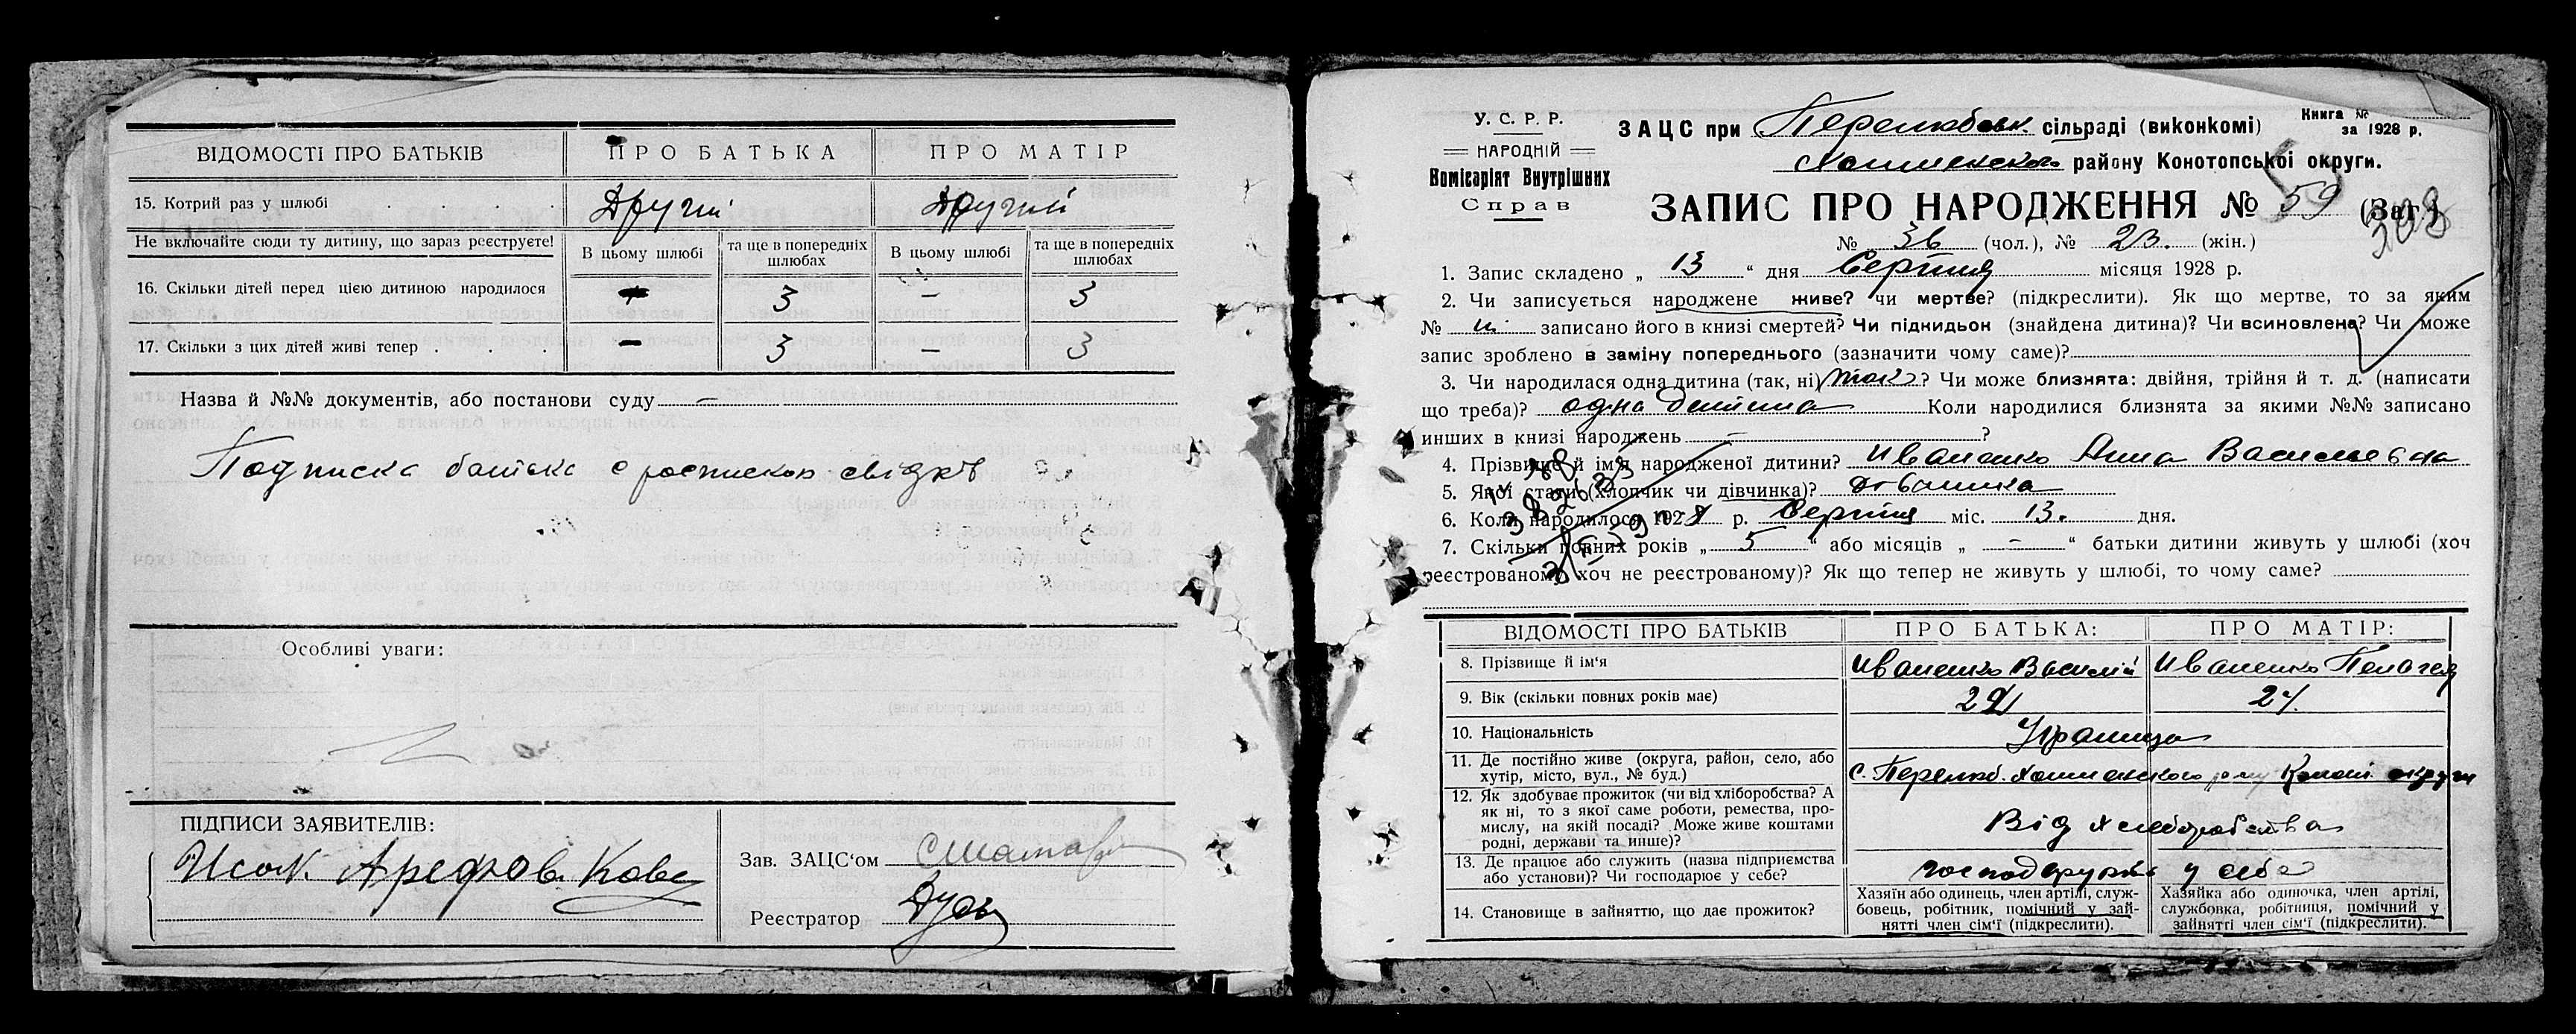 ВІДОМОСТІ ПРО БАТЬКІВ
ПРО БАТЬКА
ПРО МАТІР
15. Котрий раз у шлюбі . . . .
Другий
Другий
Не включайте сюди ту дитину, що зараз реєструєте!
В цьому шлюбі
та ще в попередніх шлюбах
В цьому шлюбі
та ще в попередніх шлюбах
16. Скільки дітей перед цією дитиною народилося
3
–
3
17. Скільки з цих дітей живі тепер . . .
–
3
–
3
Назва й №№ документів, або постанови суду –
Подписка батька с роспискою свідків
Особливі уваги:
ПІДПИСИ ЗАЯВИТЕЛІВ:
Арефов
Зав. ЗАЦС‘ом
Реєстратор
У. С. Р. Р.
НАРОДНІЙ
Комісаріят Внутрішних
Справ
ЗАЦС при сільраді (виконкомі)
Книга №
за 1928 р.
району Конотопської округи.
ЗАПИС ПРО НАРОДЖЕННЯ № 59 (Заг.)
308
№ 36 (чол.), № 23. (жін.)
1. Запис складено „ 13 “ дня Серпня місяця 1928 р.
2. Чи записується народжене живе? чи мертве? (підкреслити). Як що мертве, то за яким
№ записано його в книзі смертей? Чи підкидьок (знайдена дитина)? Чи всиновлена? Чи може
запис зроблено в заміну попереднього (зазначити чому саме)?
3. Чи народилася одна дитина (так, ні) так? Чи може близнята: двійня, трійня й т. д. (написати
що треба)? одна дитина Коли народилися близнята за якими №№ записано
инших в книзі народжень – ?
4. Прізвище й ім‘я народженої дитини? Иваненко Анна Васильевна
5. Якої стати (хлопчик чи дівчинка)? дівчинка
6. Коли народилося 1928 р. Серпня міс. 13. дня.
7. Скільки повних років „ 5 “ або місяців „ – “ батьки дитини живуть у шлюбі (хоч
реєстрованому, хоч не реєстрованому)? Як що тепер не живуть у шлюбі, то чому саме?
ВІДОМОСТІ ПРО БАТЬКІВ
ПРО БАТЬКА:
ПРО МАТІР:
8. Прізвище й ім‘я
Иваненко Василій
Иваненко Пелагея
9. Вік (скільки повних років має)
10. Національність
Украинцы
11. Де постійно живе (округа, район, село, або
хутір, місто, вул., № буд.)
12. Як здобуває прожиток (чи від хліборобства? А
як ні, то з якої саме роботи, ремества, про-
мислу, на якій посаді? Може живе коштами
родні, держави та инше)?
Від хлеборобства
13. Де працює або служить (назва підприємства
або установи)? Чи господарює у себе?
у себе
14. Становище в зайняттю, що дає прожиток?
Хазяїн або одинець, член артілі, служ-
бовець, робітник, помічний у зай-
нятті член сім‘ї (підкреслити).
Хазяйка або одиночка, член артілі,
службовка, робітниця, помічний у
зайнятті член сім‘ї (підкреслити).